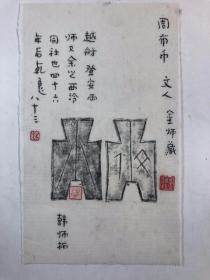 周布币 文人
师藏
越舒 登安两
师又余之西泠
同社也四十六
年后乾良
八十三
韩师拓